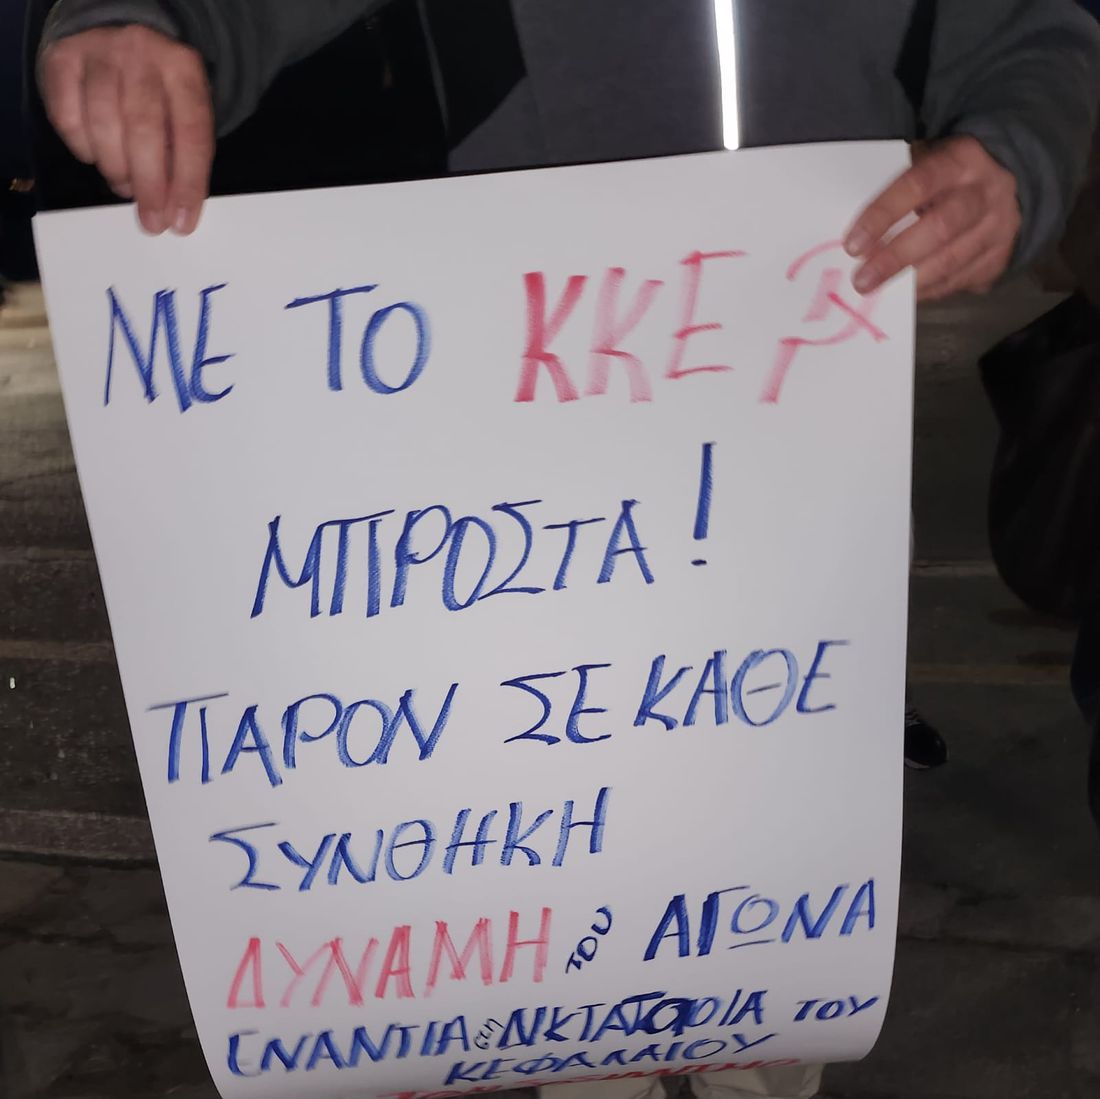 ΜΕ ΤΟ ΚΚΕ ☭
ΜΠΡΟΣΤΑ!
ΠΑΡΟΝ ΣΕ ΚΑΘΕ
ΣΥΝΘΗΚΗ
ΔΥΝΑΜΗ ΤΟΥ ΑΓΩΝΑ
ΕΝΑΝΤΙΑ στη ΔΙΚΤΑΤΟΡΙΑ ΤΟΥ
ΚΕΦΑΛΑΙΟΥ